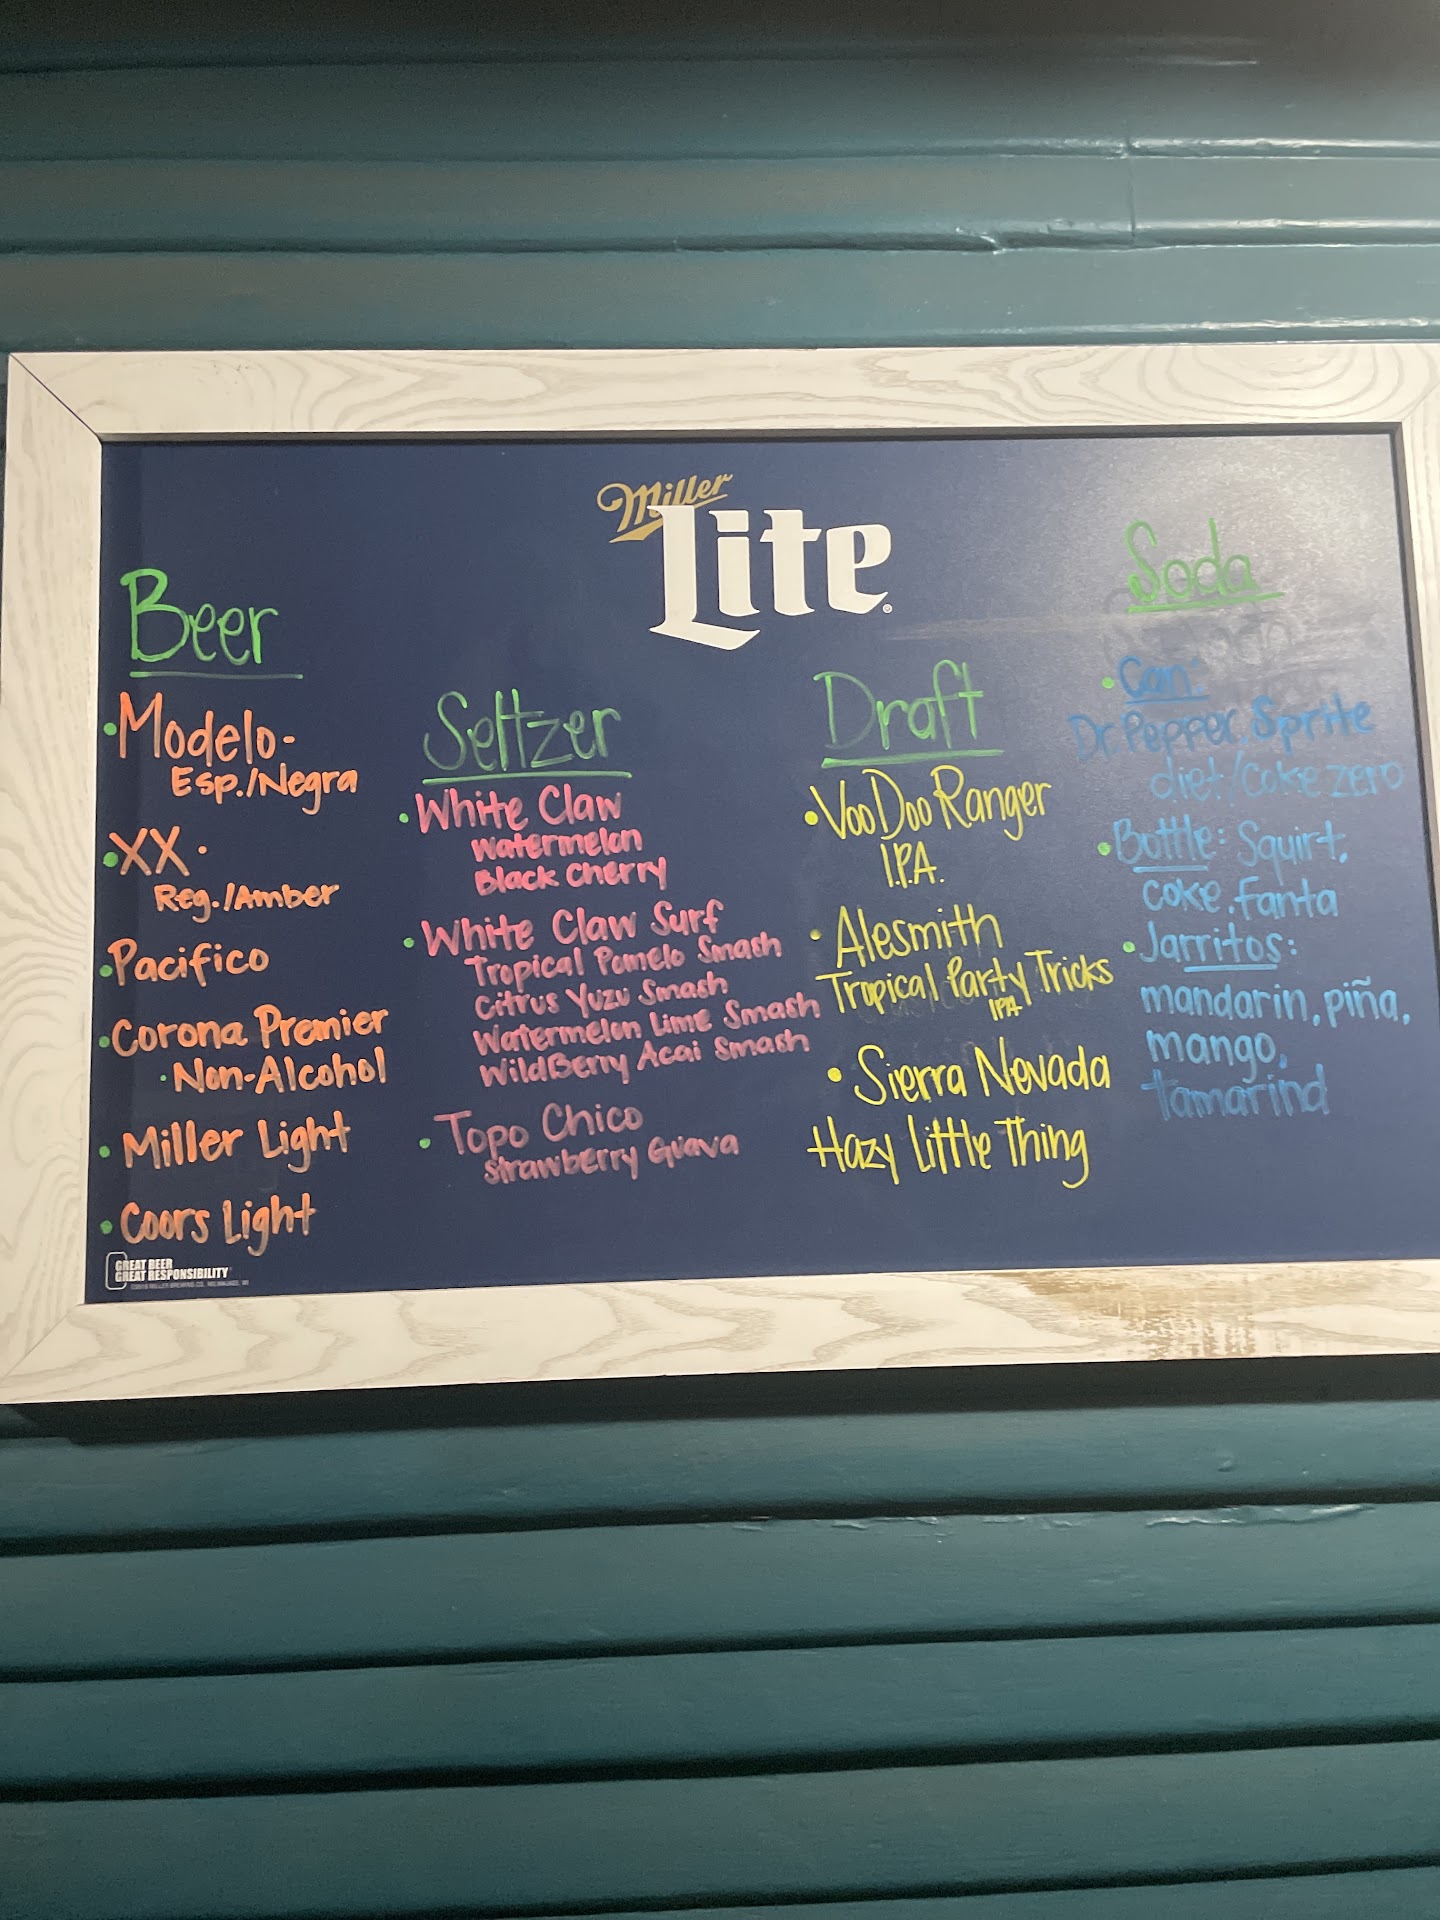 Miller
Lite
Beer
• Modelo-
Esp./Negra
• XX •
Reg./Amber
• Pacifico
• Corona Premier
• Non-Alcohol
• Miller Light
• Coors Light
GREAT BEER
GREAT RESPONSIBILITY
Seltzer
• White Claw
Watermelon
Black Cherry
• White Claw Surf
Tropical Pomelo Smash
Citrus Yuzu Smash
Watermelon Lime Smash
WildBerry Acai Smash
• Topo Chico
Strawberry Guava
Draft
• VooDoo Ranger
I.P.A.
• Alesmith
Tropical Party Tricks
IPA
• Sierra Nevada
Hazy Little Thing
Soda
• Can:
Dr. Pepper, Sprite
diet/Coke zero
• Bottle: Squirt,
Coke, Fanta
• Jarritos:
mandarin, piña,
mango,
tamarind